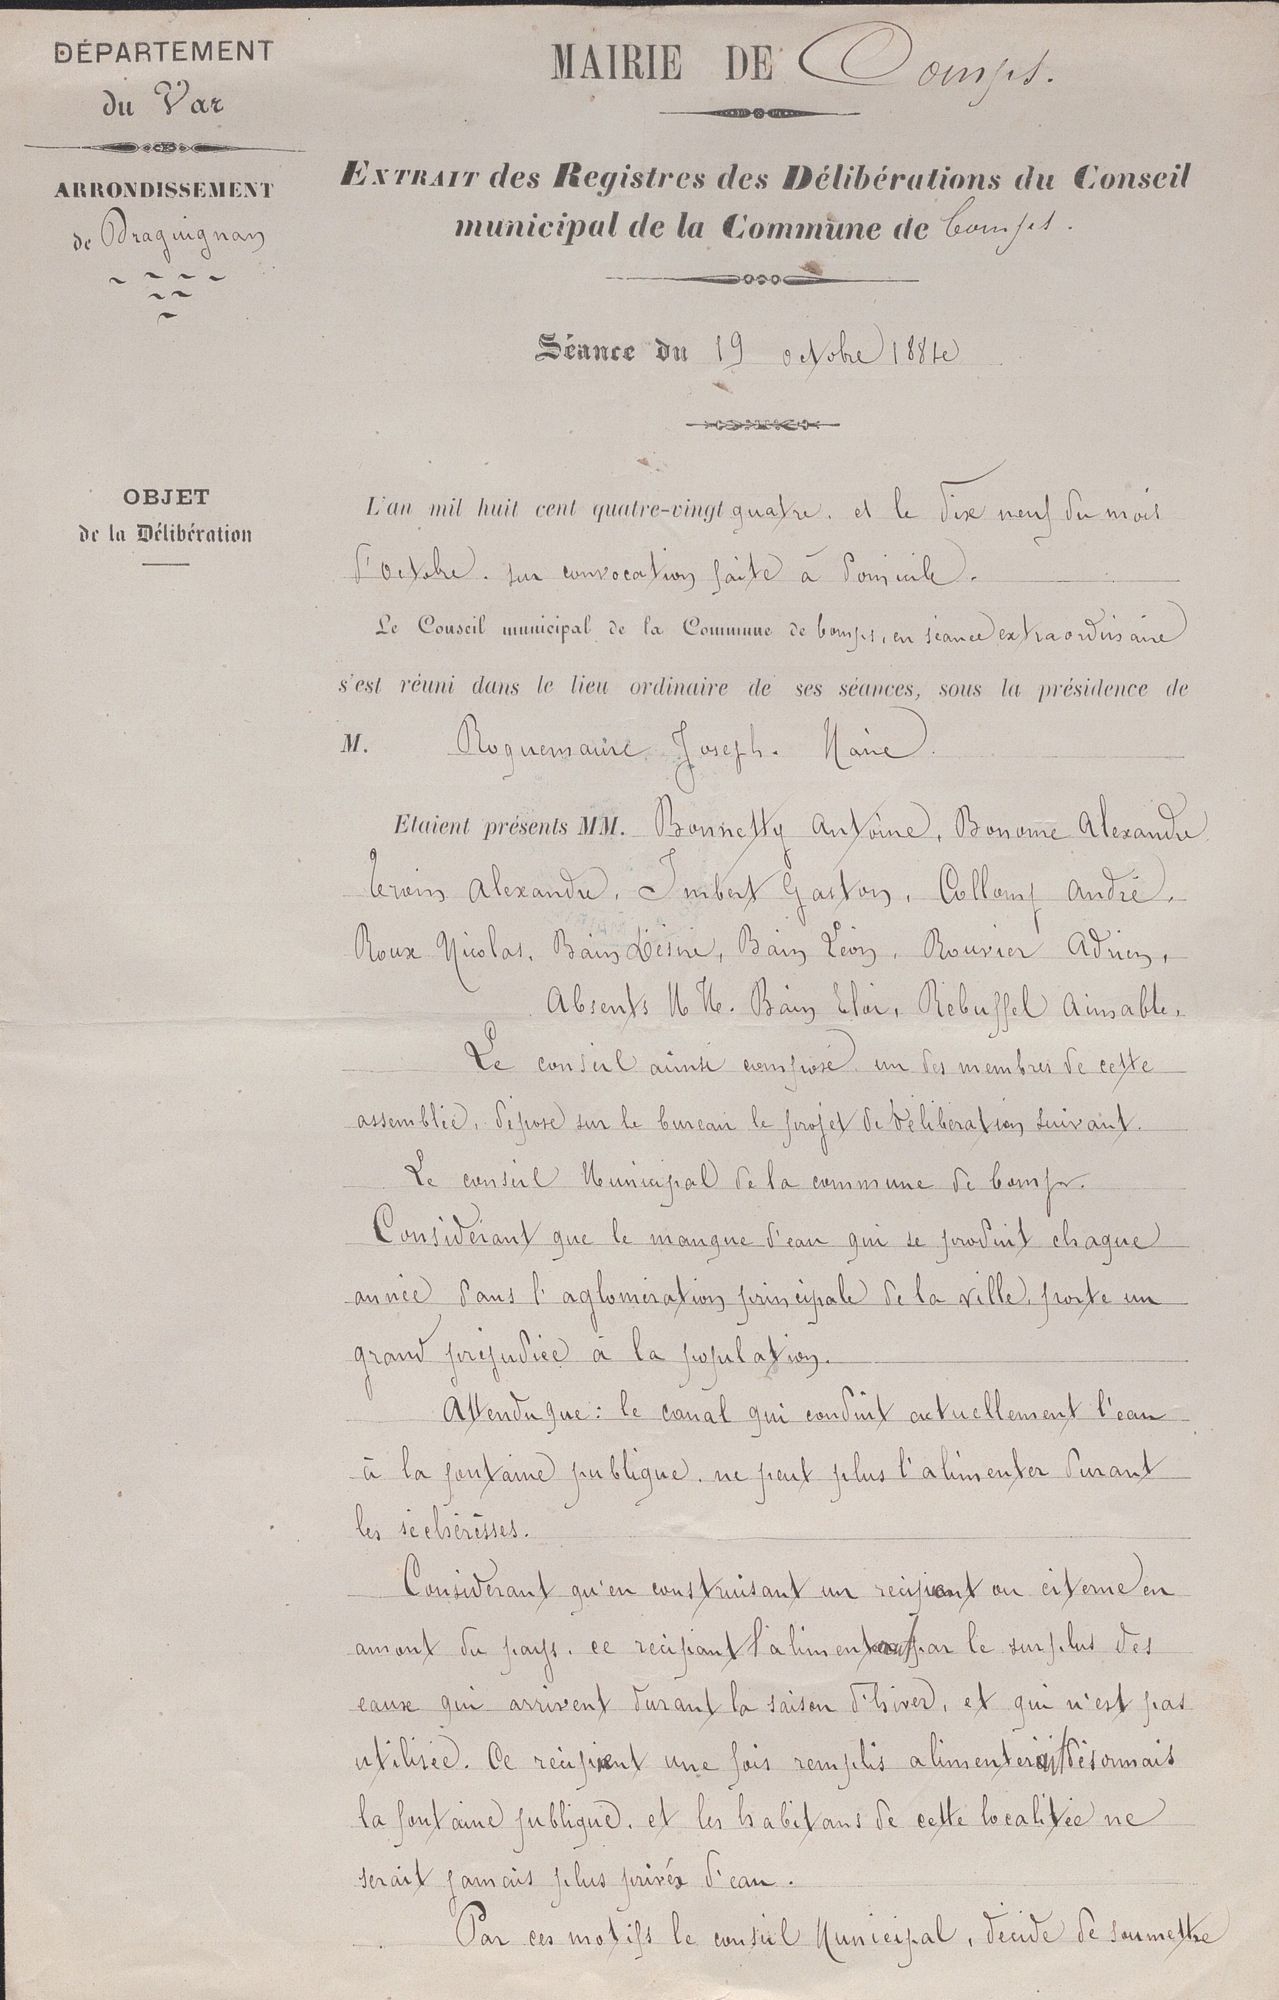 DÉPARTEMENT
du Var
ARRONDISSEMENT
de Draguignan
MAIRIE DE Comps.
EXTRAIT des Registres des Délibérations du Conseil
municipal de la Commune de Comps.
Séance du 19 octobre 1884
OBJET
de la Délibération
L'an mil huit cent quatre-vingt quatre. et le dix neuf du mois
d'octobre. sur convocation faite à domicile.
Le Conseil municipal de la Commune de Comps, en séance extraordinaire
s'est réuni dans le lieu ordinaire de ses séances, sous la présidence de
M. Roquemaure Joseph. Maire.
Etaient présents MM. Bonnetty Antoine, Bonome Alexandre
Alexandre, Imbert Gaston, Collomp André,
Roux Nicolas, Bain Désiré, Bain Léon, Rouvier Adrien,
Absents MM. Bain Eloi, Rebuffel Aimable,
Le conseil ainsi composé un des membres de cette
assemblée, dépose sur le bureau le projet de délibération suivant.
Le conseil Municipal de la commune de Comps.
Considérant que le manque d'eau qui se produit chaque
année dans l'aglomération principale de la ville, porte un
grand préjudice à la population.
Attendu que : le canal qui conduit actuellement l'eau
à la fontaine publique. ne peut plus l'alimenter durant
les sécherèsses.
Considerant qu'en construisant un recipient ou citerne en
amont du pays. ce recipiant par le surplus des
eaux qui arrivent durant la saison d'hiver, et qui n'est pas
utilisée. Ce recipient une fois remplis alimenterait désormais
la fontaine publique, et les habitans de cette localitée ne
serait jamais plus privés d'eau.
Par ces motifs le conseil Municipal, décide de soumettre